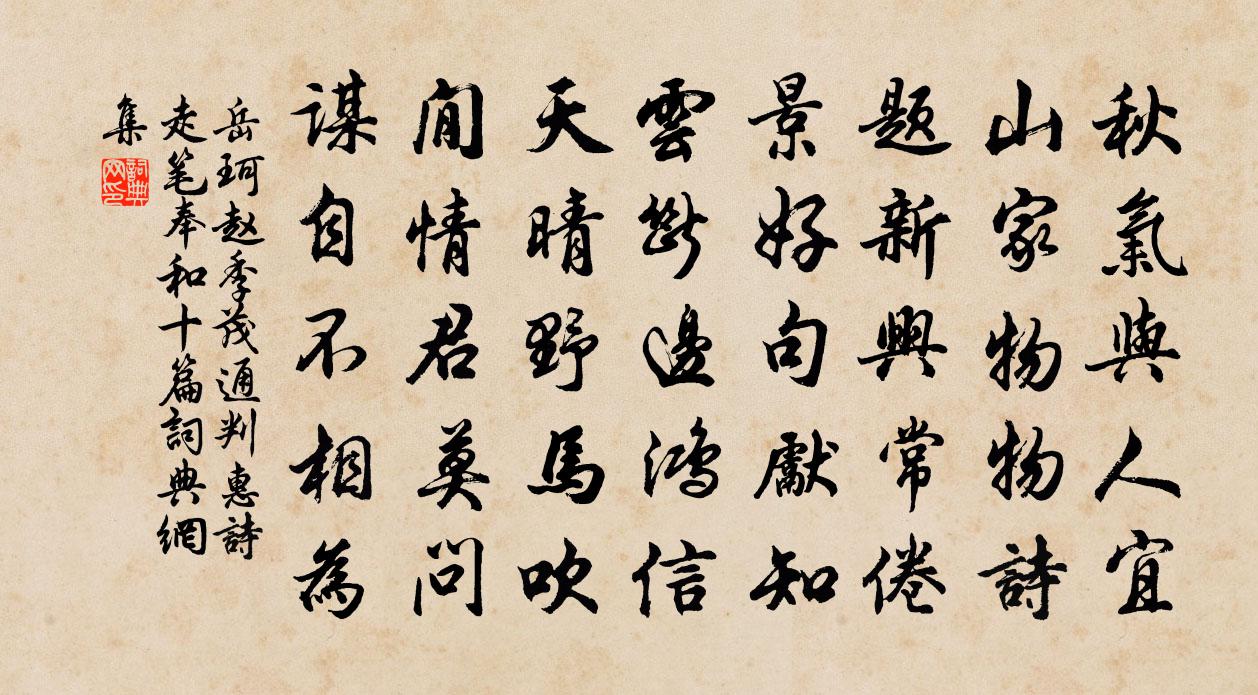 秋氣與人宜
山家物物詩
題新興常倦
景好句獻知
雲斷邊鴻信
天晴野馬吹
閒情君莫問
謀自不相為
岳珂赵季茂通判惠詩
走筆奉和十篇詞典網
集
詞典網印